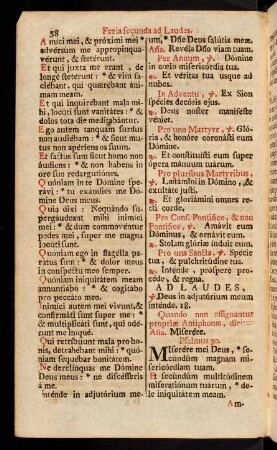 58 Feria secunda ad Laudes.
Amici mei, & próximi mei *
advérsum me appropinqua-
vérunt, & stetérunt.
Et qui juxta me erant, de
longè stetérunt: * & vim fa-
ciébant, qui quærébant áni-
mam meam.
Et qui inquirébant mala mi-
hi, locúti sunt vanitátes: * &
dolos tota die meditabántur.
Ego autem tanquam surdus
non audiébam: * & sicut mu-
tus non apériens os suum.
Et factus sum sicut homo non
áudiens: * & non habens in
ore suo redargutiónes.
Quóniam in te Dómine spe-
rávi: * tu exáudies me Dó-
mine Deus meus.
Quia dixi: Nequándo su-
pergáudeant mihi inimíci
mei: * & dum commovéntur
pedes mei, super me magna
locúti sunt.
Quóniam ego in flagélla pa-
rátus sum: * & dolor meus
in conspéctu meo semper.
Quóniam iniquitátem meam
annuntiábo: * & cogitábo
pro peccáto meo.
Inimíci autem mei vivunt, &
confirmáti sunt super me: *
& multiplicáti sunt, qui odé-
runt me iníquè.
Qui retríbuunt mala pro bo-
nis, detrahébant mihi: * quó-
niam sequébar bonitátem.
Ne derelínquas me Dómine
Deus meus: * ne discésseris
à me.
Inténde in adjutórium me-
um, * Dñe Deus salútis meæ.
Aña. Revéla Dño viam tuam.
Per Annum, ℣. Dómine
in cœlo misericórdia tua.
℟. Et véritas tua usque ad
nubes.
In Adventu, ℣. Ex Sion
spécies decóris ejus.
℟. Deus noster maniféste
véniet.
Pro uno Martyre, ℣. Gló-
ria, & honóre coronásti eum
Dómine.
℟. Et constituísti eum super
ópera mánuum tuárum.
Pro pluribus Martyribus,
℣. Lætámini in Dómino, & ex-
sultáte justi.
℟. Et gloriámini omnes re-
cti corde.
Pro Conf. Pontifice, & non
Pontifice, ℣. Amávit eum
Dóminus, & ornávit eum.
℟. Stolam glóriæ índuit eum.
Pro una Sancta, ℣. Spécie
tua, & pulchritúdine tua.
℟. Inténde, próspere procé-
de, & regna.
AD LAUDES,
℣. Deus in adjutórium meum
inténde. 18.
Quando non assignantur
propriæ Antiphonæ, dicitur
Aña. Miserére.
Psalmus 50.
Miserére mei Deus, * se-
cúndùm magnam mi-
sericórdiam tuam.
Et secúndùm multitúdinem
miseratiónum tuárum, * de-
le iniquitátem meam.
Am-